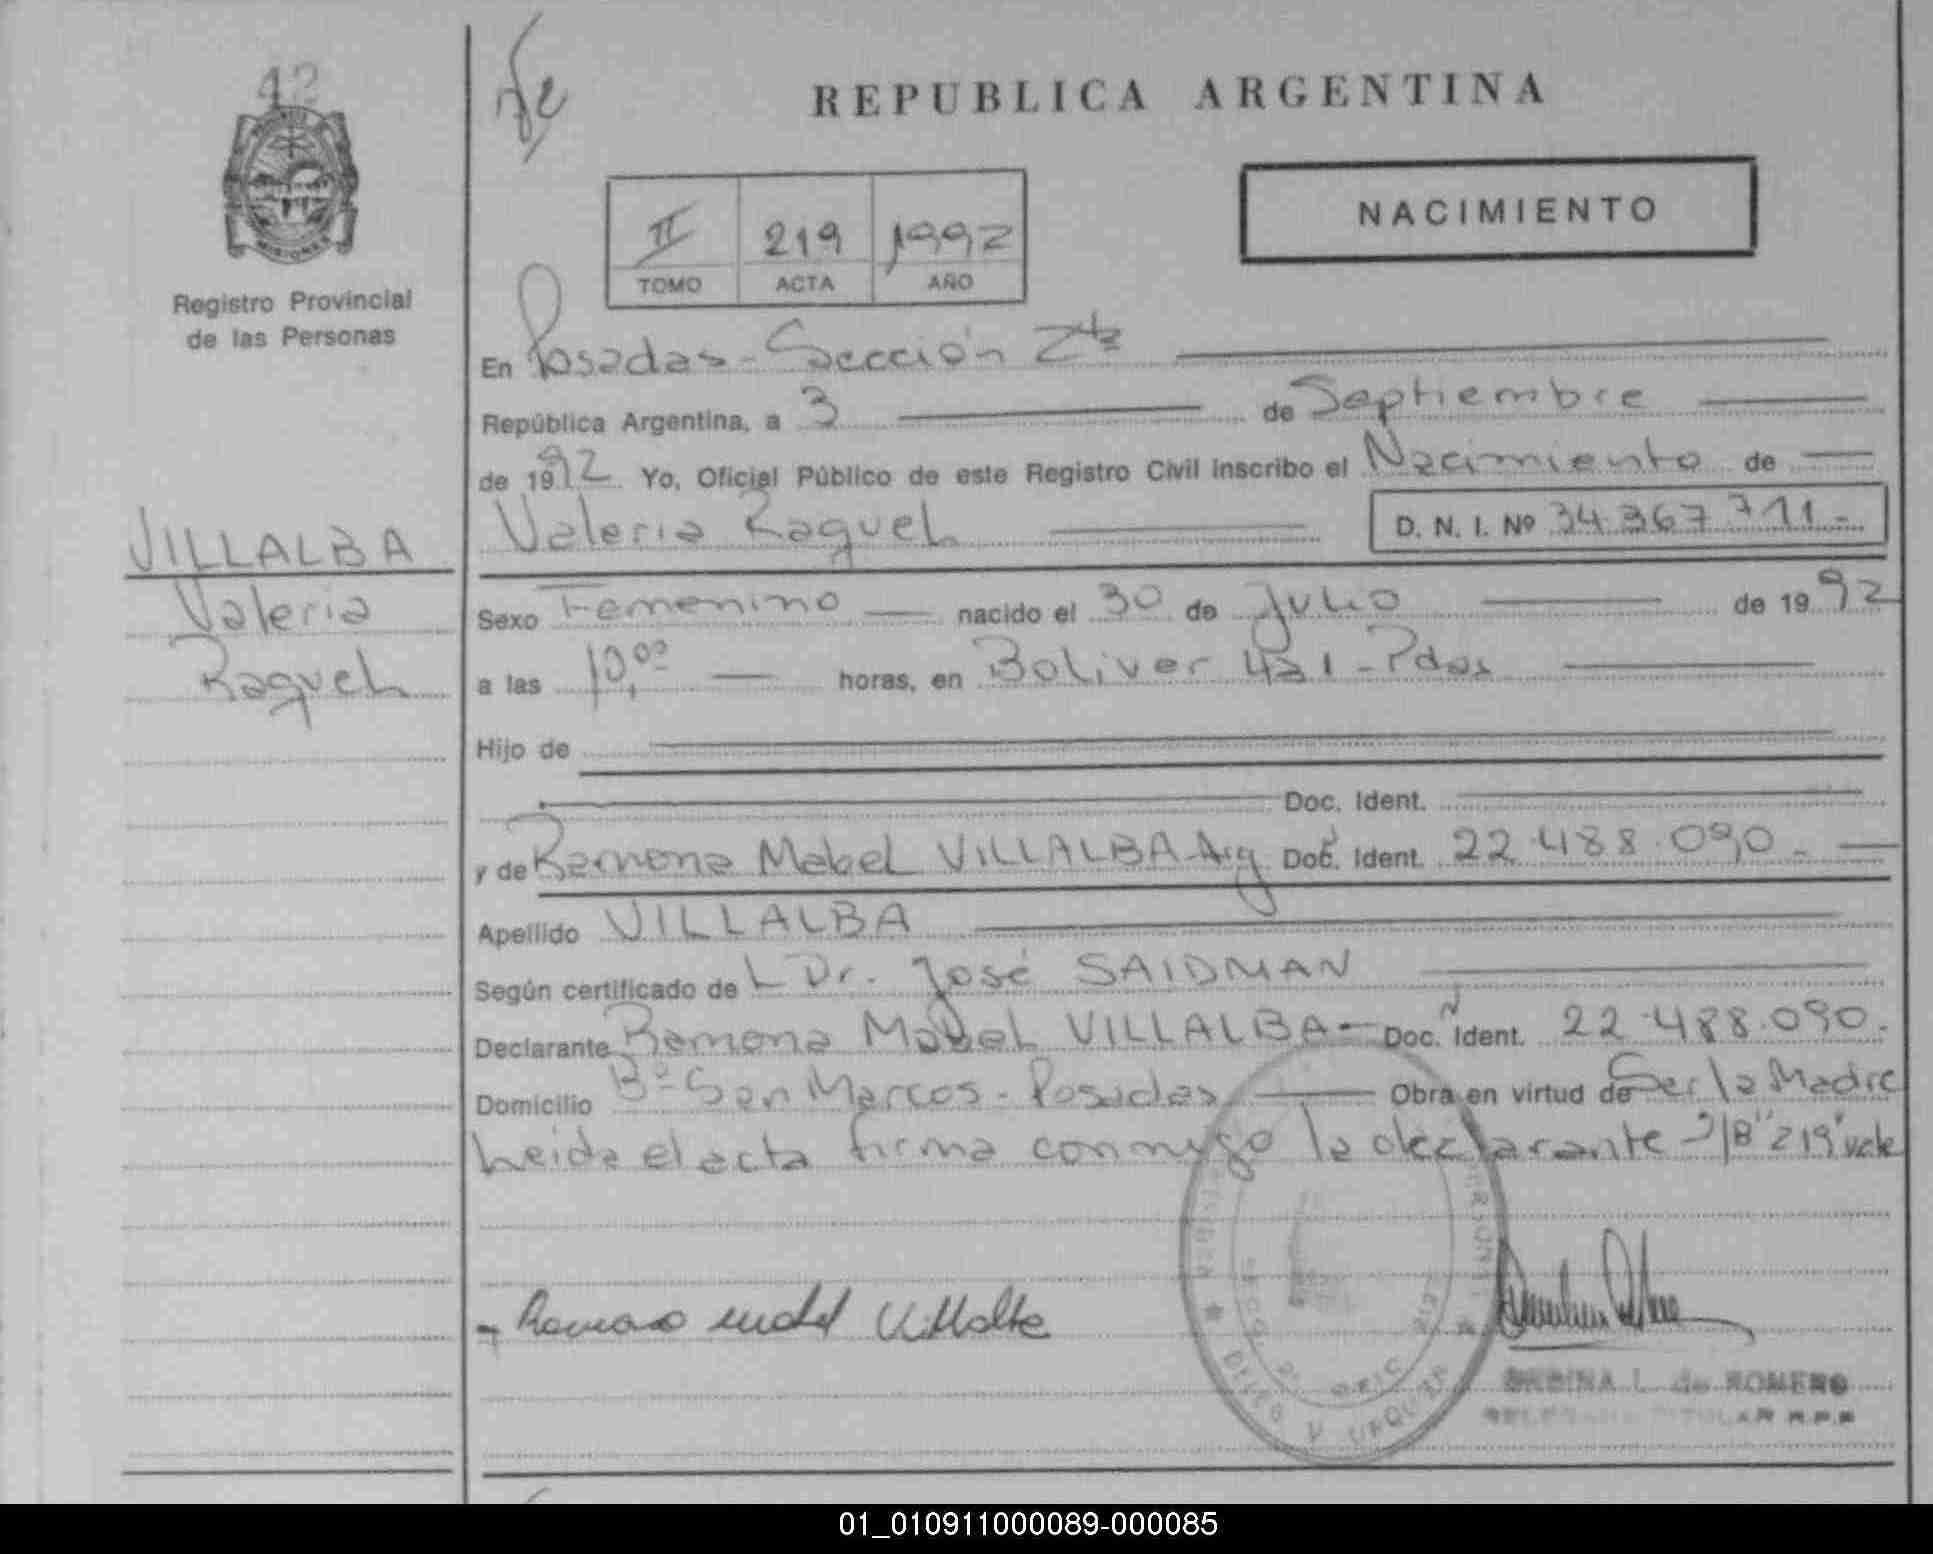 42
REPUBLICA ARGENTINA
NACIMIENTO
II 219 1992
TOMO ACTA AÑO
Registro Provincial
de las Personas
MISIONES
En Posadas - Sección 2da
República Argentina, a 3 de Septiembre
de 1992 Yo, Oficial Público de este Registro Civil inscribo el Nacimiento de
Valeria Raquel D. N. I. Nº 34.367.711.-
VILLALBA
Valeria
Raquel
Sexo Femenino nacido el 30 de Julio de 1992
a las 10,00 horas, en Bolivar 421 - Pdas
Hijo de
Doc. Ident.
y de Ramona Mabel VILLALBA Arg Doc. Ident. 22.488.090.-
Apellido VILLALBA
Según certificado de L Dr. José SAIDMAN
Declarante Ramona Mabel VILLALBA - Doc. Ident. 22.488.090.
Domicilio Bº San Marcos - Posadas Obra en virtud de Ser la Madre
Leida el acta firma conmigo la declarante - S/B "219" vale
Ramona Mabel Villalba
L. de ROMERO
TITULAR R.P.P.
01_010911000089-000085